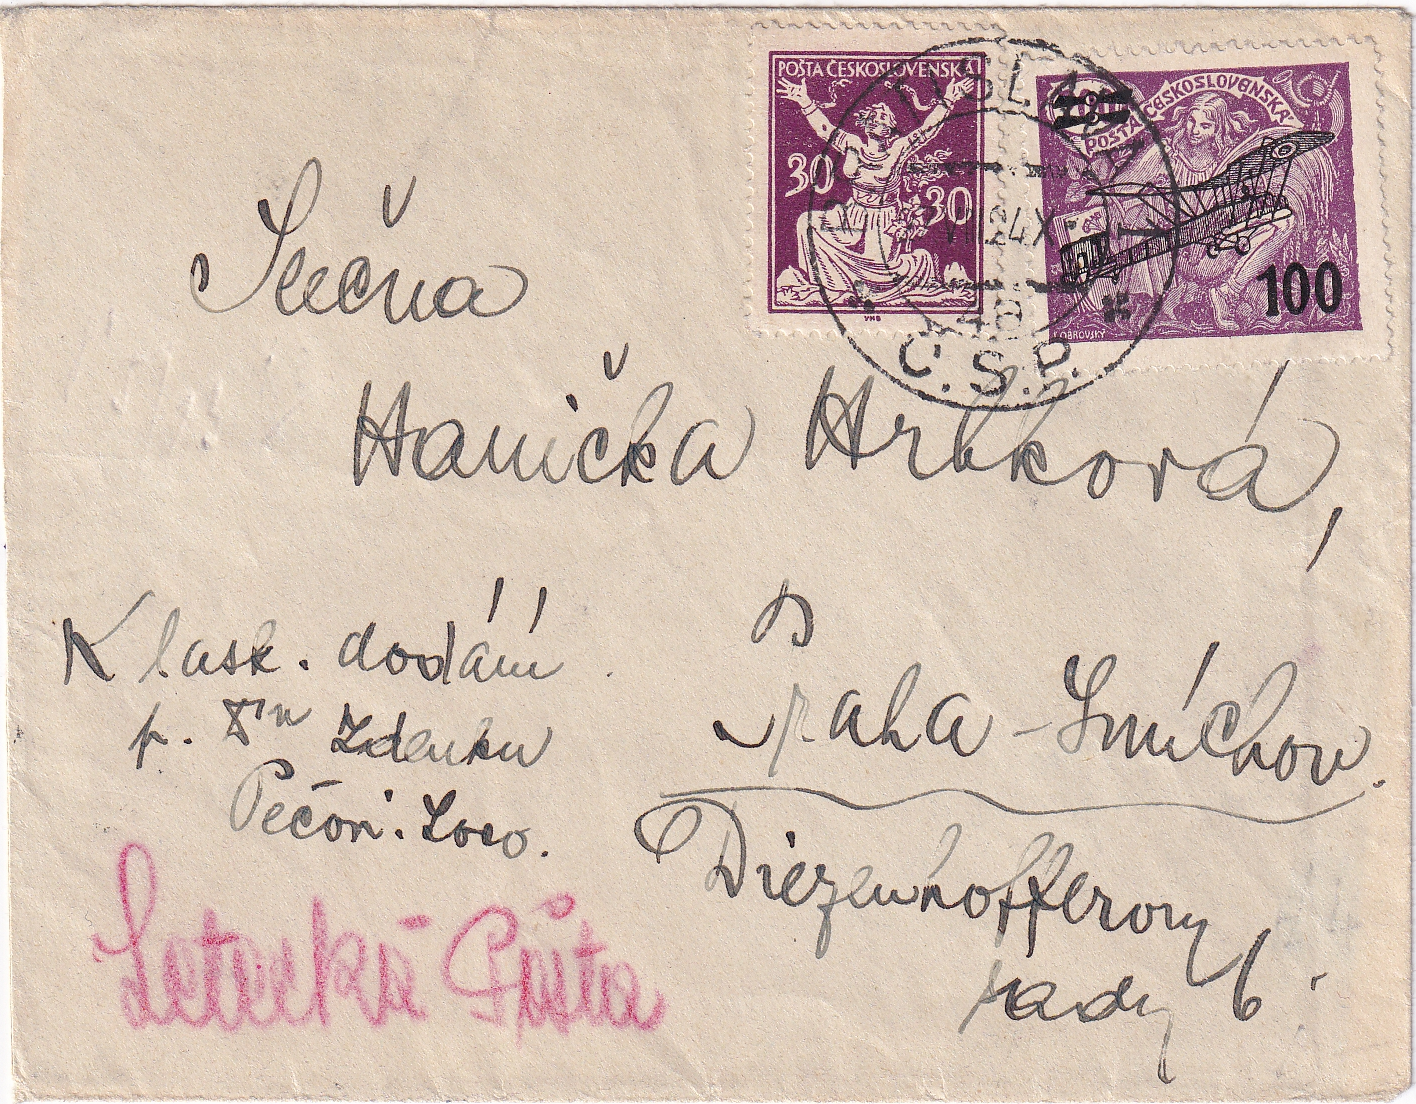 POŠTA ČESKOSLOVENSKÁ
30
30
POŠTA ČESKOSLOVENSKÁ
100
OBROVSKÝ
BRATISLAVA 1
VII.24.X
4a
Č.S.P.
Slečna
Hanička Hrbková,
K lask. dodání
p. Zdenku
Pečon. Loco.
Praha - Smíchov.
Diezenhofferovy
sady 6.
Letecká Pošta